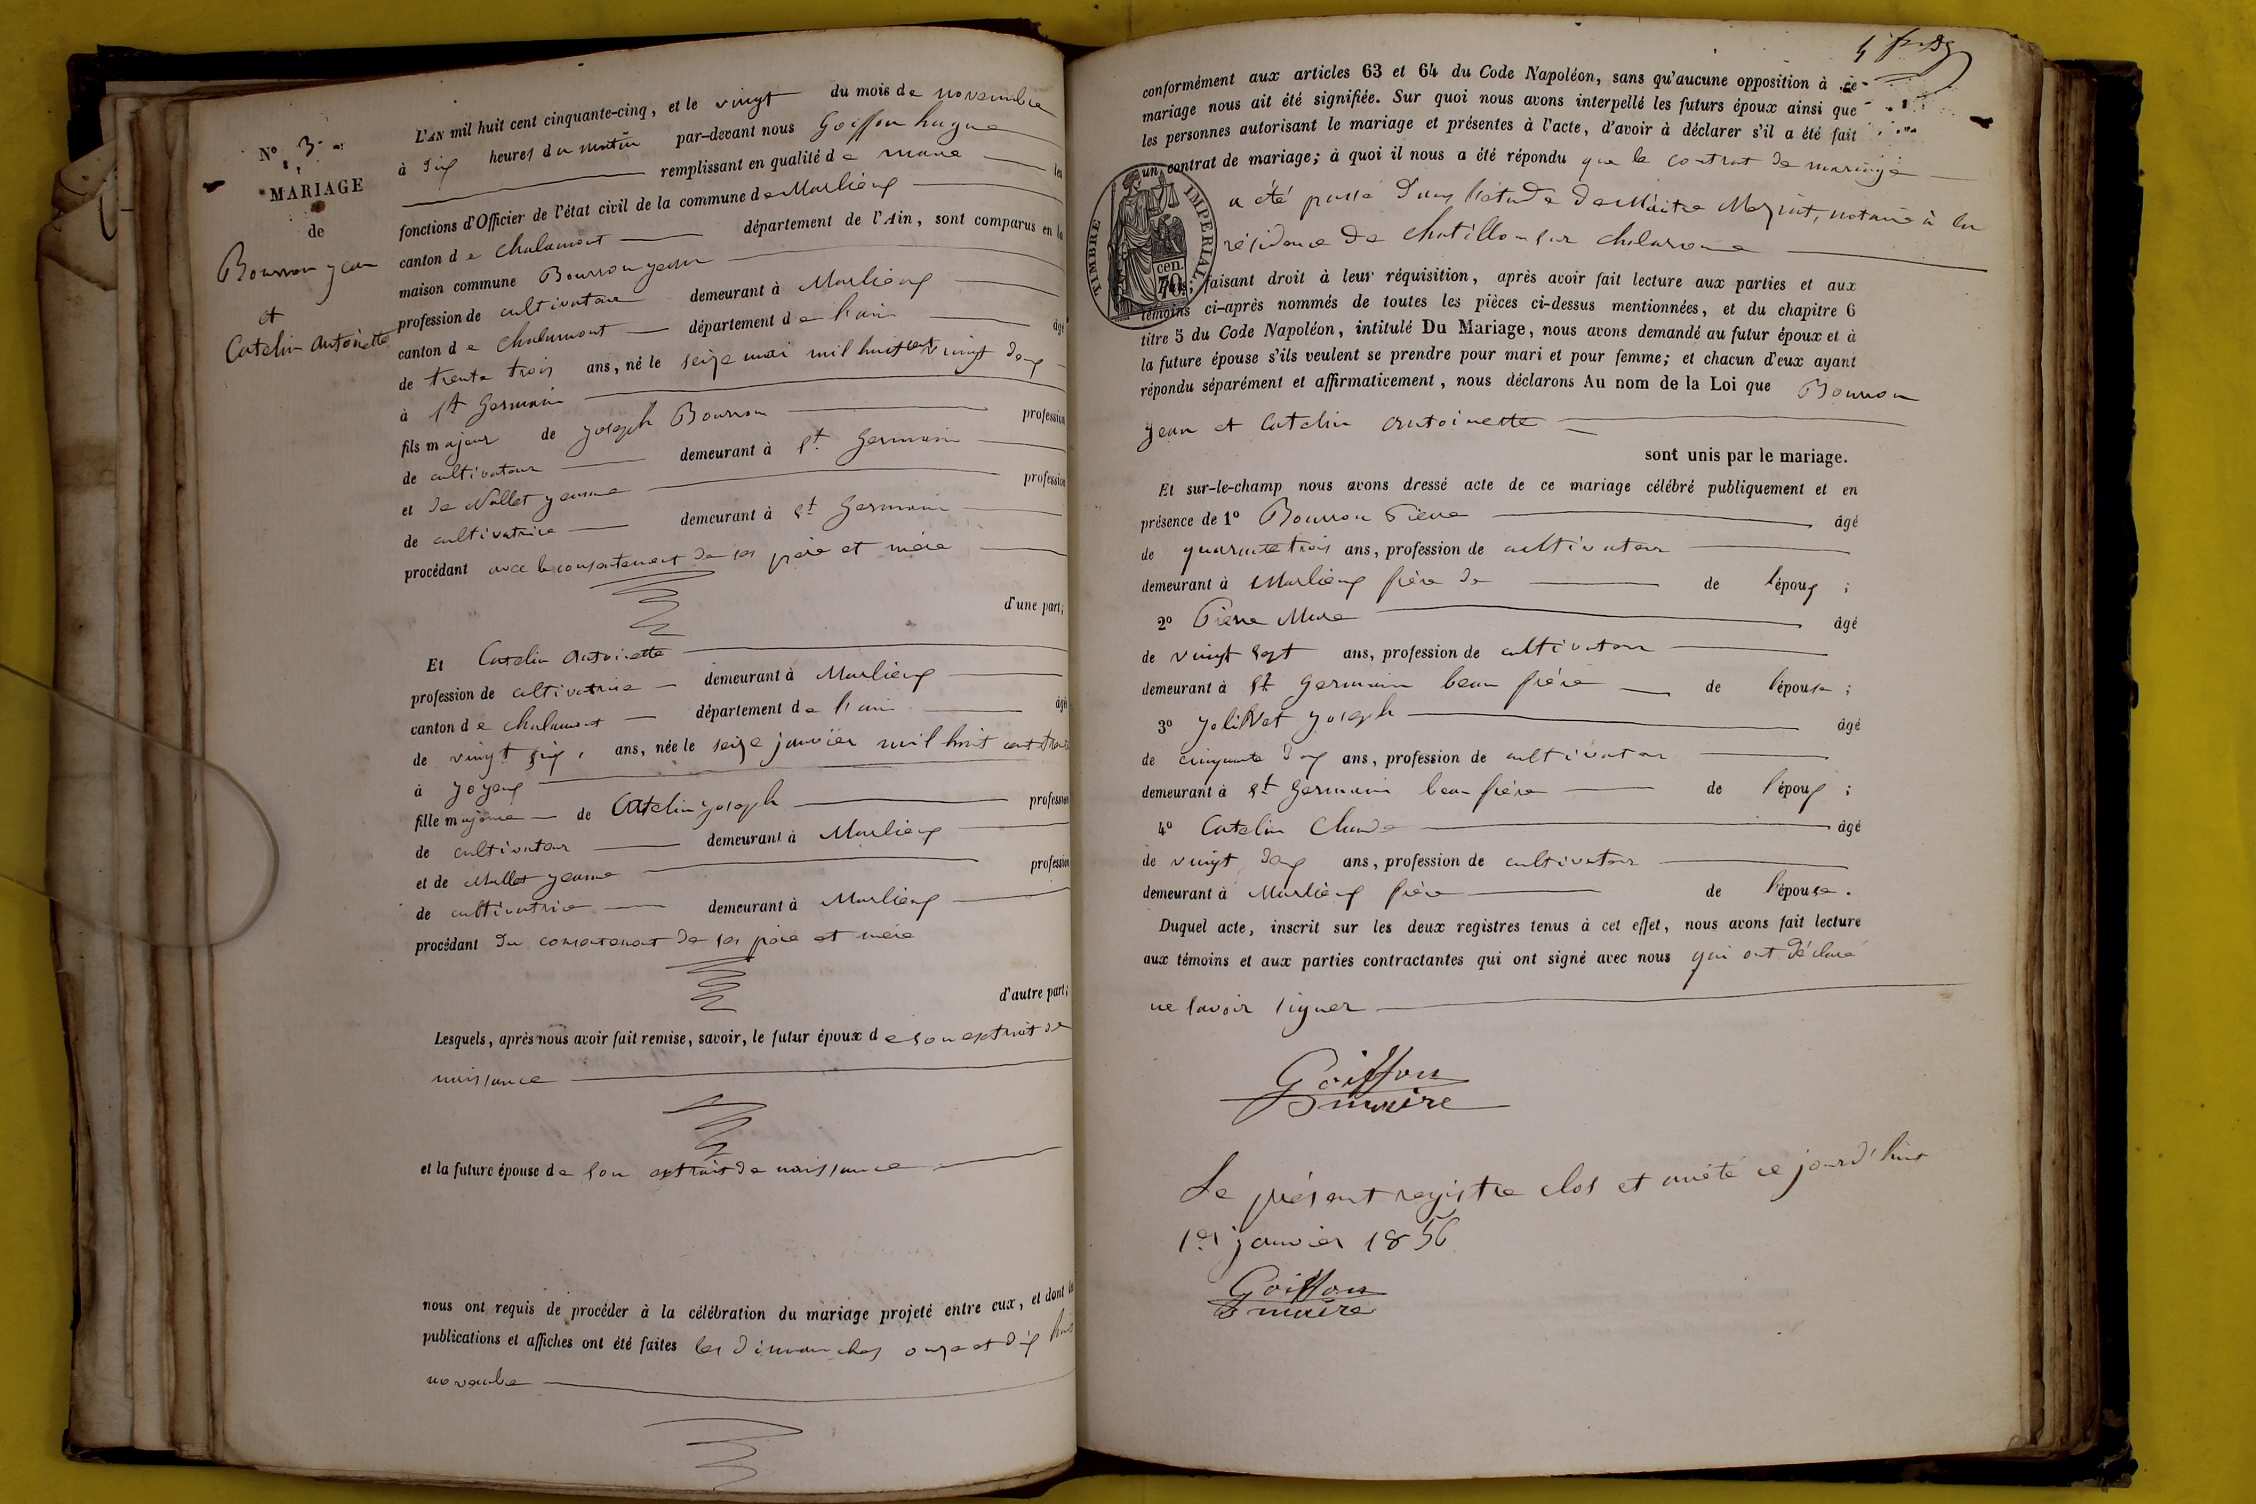 N° 3
MARIAGE
de
Bourron jean
et
Catelin Antoinette
L'AN mil huit cent cinquante-cinq, et le vingt du mois de novembre
à dix heures du matin par-devant nous Goiffon hugue
remplissant en qualité de maire les
fonctions d'Officier de l'état civil de la commune de Marlieux
canton de chalamont département de l'Ain, sont comparus en la
maison commune Bourron jean
profession de cultivateur demeurant à Marlieux
canton de chalamont département de l'ain âgé
de trente trois ans, né le seize mai mil huit cent vingt deux
à St Germain
fils majeur de joseph Bourron profession
de cultivateur demeurant à St Germain
et de Nallet jeanne profession
de cultivatrice demeurant à St Germain
procédant avec le consentement de ses père et mère
d'une part;
Et Catelin Antoinette
profession de cultivatrice demeurant à Marlieux
canton de chalamont département de l'ain âgée
de vingt six ans, née le seize janvier mil huit cent trente
à joyeux
fille majeure de Catelin joseph profession
de cultivateur demeurant à Marlieux
et de Mallet jeanne profession
de cultivatrice demeurant à Marlieux
procédant du consentement de ses père et mère
d'autre part;
Lesquels, après nous avoir fait remise, savoir, le futur époux de son extrait de
naissance
et la future épouse de son extrait de naissance
nous ont requis de procéder à la célébration du mariage projeté entre eux, et dont les
publications et affiches ont été faites les dimanches onze et dix huit
novembre
conformément aux articles 63 et 64 du Code Napoléon, sans qu'aucune opposition à ce
mariage nous ait été signifiée. Sur quoi nous avons interpellé les futurs époux ainsi que
les personnes autorisant le mariage et présentes à l'acte, d'avoir à déclarer s'il a été fait
un contrat de mariage; à quoi il nous a été répondu que le contrat de mariage
a été passé dans l'étude de Maitre notaire à la
résidence de chatillon sur chalaronne
TIMBRE IMPERIAL
cen. 70
faisant droit à leur réquisition, après avoir fait lecture aux parties et aux
témoins ci-après nommés de toutes les pièces ci-dessus mentionnées, et du chapitre 6
titre 5 du Code Napoléon, intitulé Du Mariage, nous avons demandé au futur époux et à
la future épouse s'ils veulent se prendre pour mari et pour femme; et chacun d'eux ayant
répondu séparément et affirmativement, nous déclarons Au nom de la Loi que Bourron
jean et Catelin Antoinette
sont unis par le mariage.
Et sur-le-champ nous avons dressé acte de ce mariage célébré publiquement et en
présence de 1° Bourron Pierre âgé
de quarante trois ans, profession de cultivateur
demeurant à Marlieux frère de de l'époux ;
2° Pierre Mure âgé
de vingt sept ans, profession de cultivateur
demeurant à St Germain beau frère de l'épouse ;
3° Jolivet joseph âgé
de cinquante deux ans, profession de cultivateur
demeurant à St Germain beau frère de l'époux ;
4° Catelin Claude âgé
de vingt deux ans, profession de cultivateur
demeurant à Marlieux frère de l'épouse.
Duquel acte, inscrit sur les deux registres tenus à cet effet, nous avons fait lecture
aux témoins et aux parties contractantes qui ont signé avec nous qui ont déclaré
ne savoir signer
Goiffon
maire
Le présent registre clos et arrêté ce jourd'hui
1er janvier 1856
Goiffon
maire